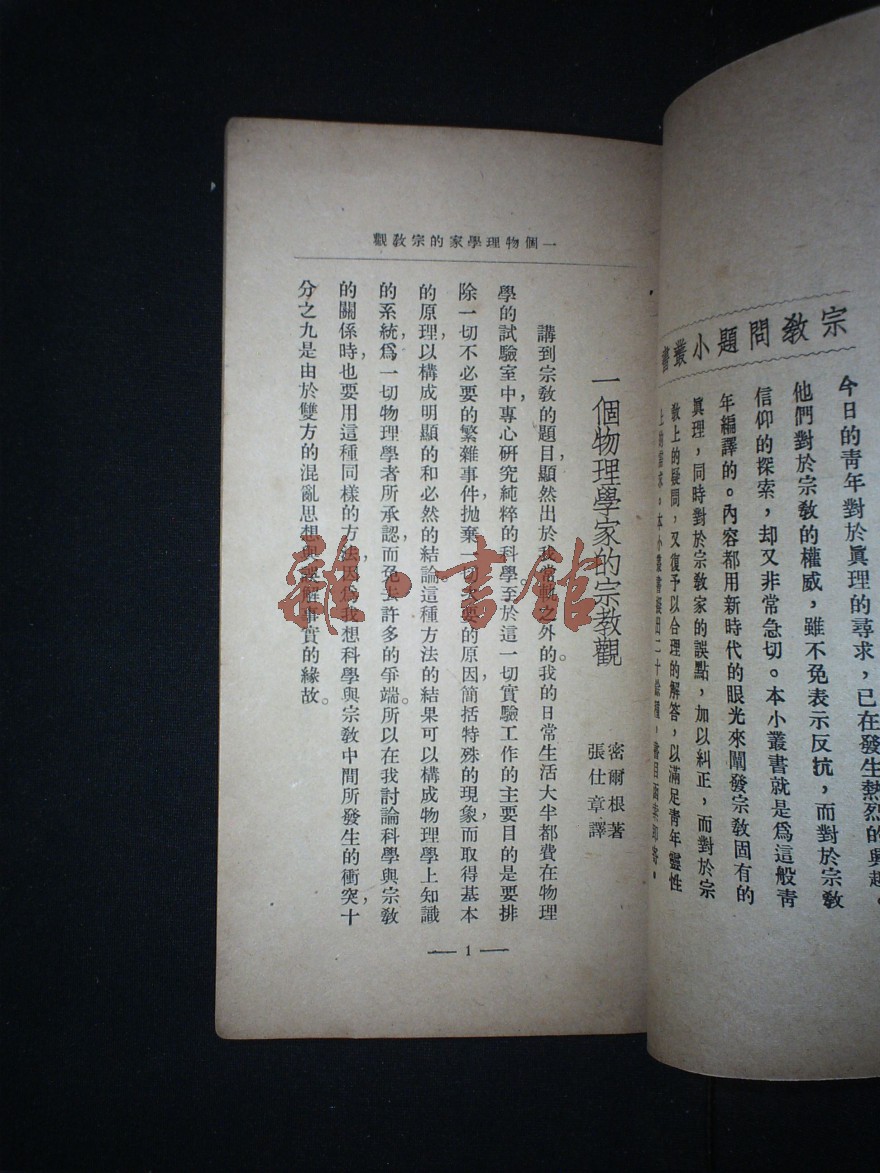 宗敎問題小叢書
今日的靑年對於眞理的尋求，已在發生熱烈的興趣。
他們對於宗敎的權威，雖不免表示反抗，而對於宗敎
信仰的探索，却又非常急切。本小叢書就是爲這般靑
年編譯的。內容都用新時代的眼光來闡發宗敎固有的
眞理，同時對於宗敎家的誤點，加以糾正，而對於宗
敎上的疑問，又復予以合理的解答，以滿足靑年靈性
上的需求。本小叢書擬出二十餘種，書目函索卽寄。
一個物理學家的宗敎觀
一個物理學家的宗敎觀
密爾根著
張仕章譯
講到宗敎的題目，顯然出於我常軌之外的。我的日常生活大半都費在物理
學的試驗室中，專心硏究純粹的科學。至於這一切實驗工作的主要目的是要排
除一切不必要的繁雜事件，拋棄一切次要的原因，簡括特殊的現象，而取得基本
的原理，以構成明顯的和必然的結論。這種方法的結果可以構成物理學上知識
的系統，爲一切物理學者所承認，而免去許多的爭端。所以在我討論科學與宗敎
的關係時，也要用這種同樣的方法，因爲我想科學與宗敎中間所發生的衝突，十
分之九是由於雙方的混亂思想與誤解事實的緣故。
— 1 —
雜·書館